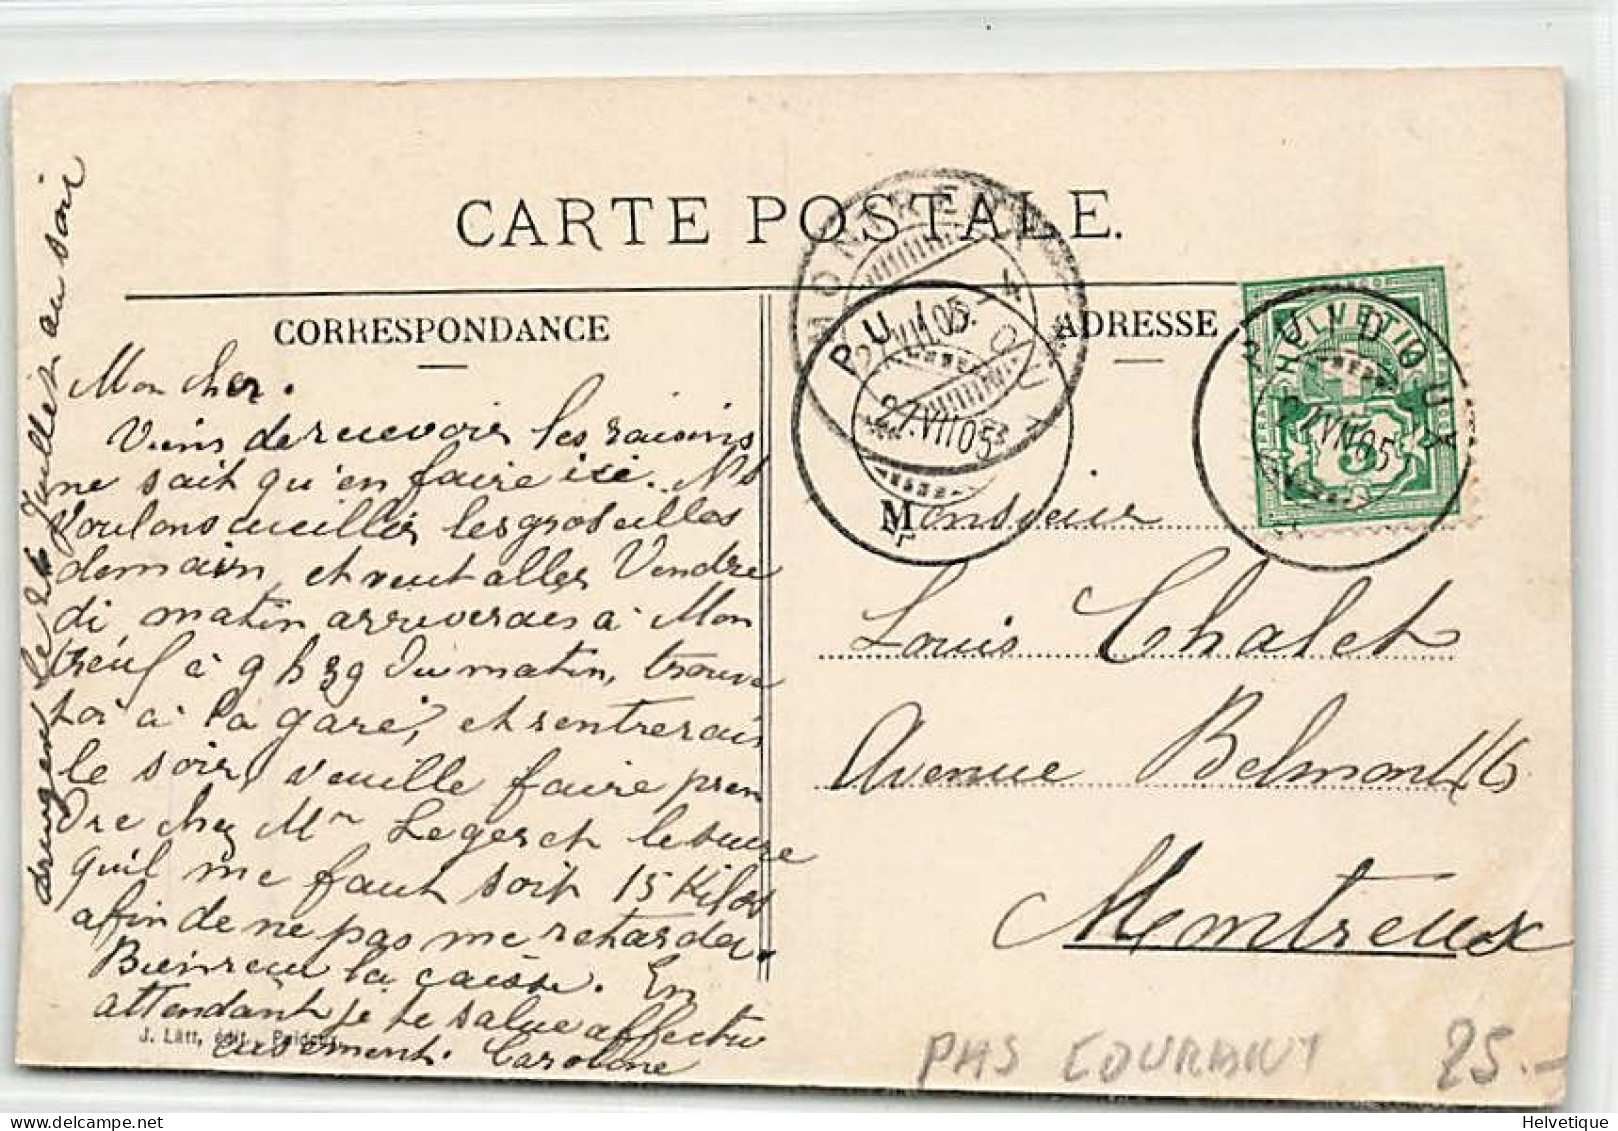 CARTE POSTALE.
CORRESPONDANCE
ADRESSE
Mon cher.
Viens de recevoir les raisins
ne sait qu'en faire ici. Ns
voulons cueillir les groseilles
demain, et veut aller Vendre
di matin arriverais à Mon
treux à 9 h 39 du matin, trouve
toi à la gare, et rentrerais
le soir, veuille faire pren
dre chez Mr Legeret le sucre
qu'il me faut soit 15 Kilos
afin de ne pas me retarder.
Bien reçu la caisse. En
attendant je te salue affectu
eusement. Caroline
le 26 Juillet au soir
J. Lätt, édit., Puidoux.
MONTREUX
27.VII.05
PUIDOUX
27.VII.05
PUIDOUX
27.VII.05
HELVETIA
5
Monsieur
Louis Chalet
Avenue Belmont 16
Montreux
PAS COURANT 25.-
delcampe.net
Helvetique